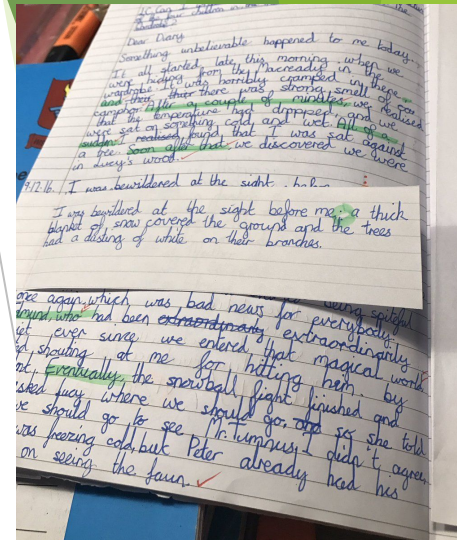 L.C. Can I
Dear Diary
Something unbelievable happened to me today.
It all started late this morning, when we
were hiding from the Macready in the
wardrobe. It was horribly cramped in there
and there was strong smell of
camphor. After a couple of minutes, we realised
that the temperature had dropped, and we
were sat on something cold and wet. All of a
sudden I realised found that I was sat against
a tree. Soon after that, we discovered we were
in Lucy's wood.
9.12.16. I was bewildered at the sight
I was bewildered at the sight before me; a thick
blanket of snow covered the ground and the trees
had a dusting of white on their branches.
being spiteful
once again, which was bad news for everybody.
who had been extraordinary extraordinarily
ever since we entered that magical world
shouting at me for hitting him. by
Eventually, the snowball fight finished and
Lucy where we should go, and so she told
we should go to see Mr. Tumnus, I didn't agree,
was freezing cold, but Peter already had his
on seeing the faun.